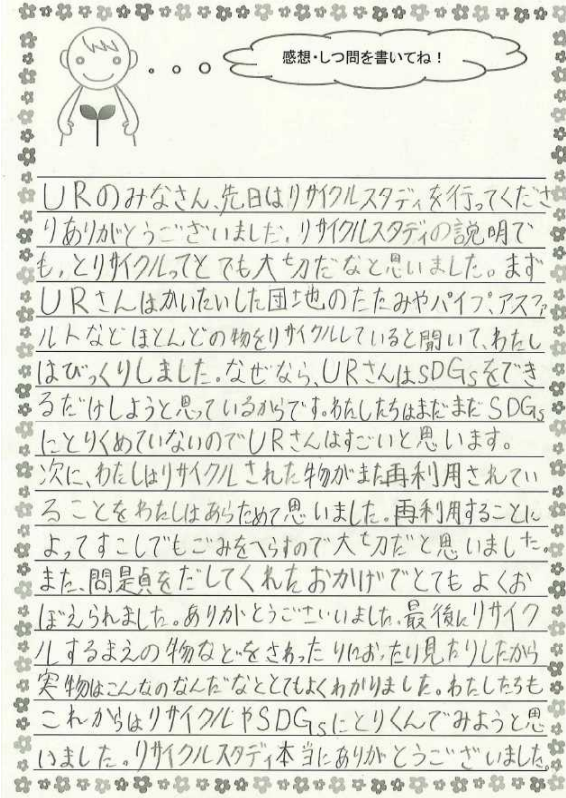 感想・しつ問を書いてね！
URのみなさん、先日はリサイクルスタディを行ってくださ
りありがとうございました。リサイクルスタディの説明で
も，とリサイクルってとても大切だなと思いました。まず
URさんはかいたいした団地のたたみやパイプ、アスファ
ルトなどほとんどの物をリサイクルしていると聞いて、わたし
はびっくりしました。なぜなら、URさんはSDGsをでき
るだけしようと思っているからです。わたしたちはまだまだSDGs
にとりくめていないのでURさんはすごいと思います。
次に、わたしはリサイクルされた物がまた再利用されてい
ることをわたしはあらためて思いました。再利用することに
よってすこしでもごみをへらすので大切だと思いました。
また、問題をだしてくれたおかげでとてもよくお
ぼえられました。ありがとうございいました。最後にリサイク
ルするまえの物などをさわったりにおったり見たりしたから
実物はこんなのなんだなととてもよくわかりました。わたしたちも
これからはリサイクルやSDGsにとりくんでみようと思
いました。リサイクルスタディ本当にありがとうございました。